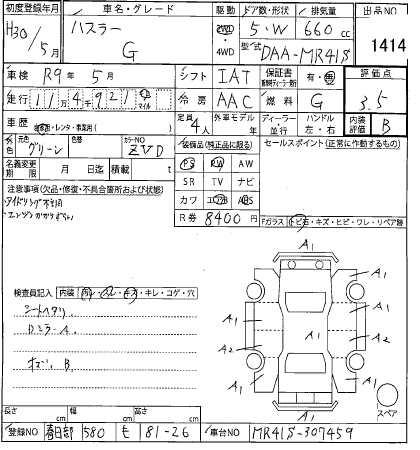 初度登録年月 車名・グレード 駆動 ドア数・形状 排気量 出品NO
H30/5月 ハスラー G 2WD 4WD 5・W 660cc 1414
型式 DAA-MR41S
車検 R9年5月 シフト IAT 保証書 有・無 評価点
走行 11万4千921 km マイル 冷房 AAC 燃料 G 3.5
車歴 自家用・レンタ・事業用( ) 定員 4人 外車モデル 年 ディーラー・並行 ハンドル 左・右 内装評価 B
外色 元色 グリーン 色替 カラーNO ZVD 装備品(純正品に限る) セールスポイント(正常に作動するもの)
名義変更期限 月 日迄 積載 t PS PW AW
注意事項(欠品・修復・不具合箇所および状態) SR TV ナビ
アイドリング不調 カワ エアB ABS
エンジンかかりずらい R券 8400円 Fガラス トビ石・キズ・ヒビ・ワレ・リペア跡
検査員記入 内装 キレ・コゲ・穴
シートヘタリ
DミラーA
キズ、B
A1
A1
A1
A1
A1
A1
A1
A2
A2
A1
A1
A1
スペア
長さ cm 幅 cm 高さ cm
登録NO 春日部 580 も 81-26 車台NO MR41S-307459